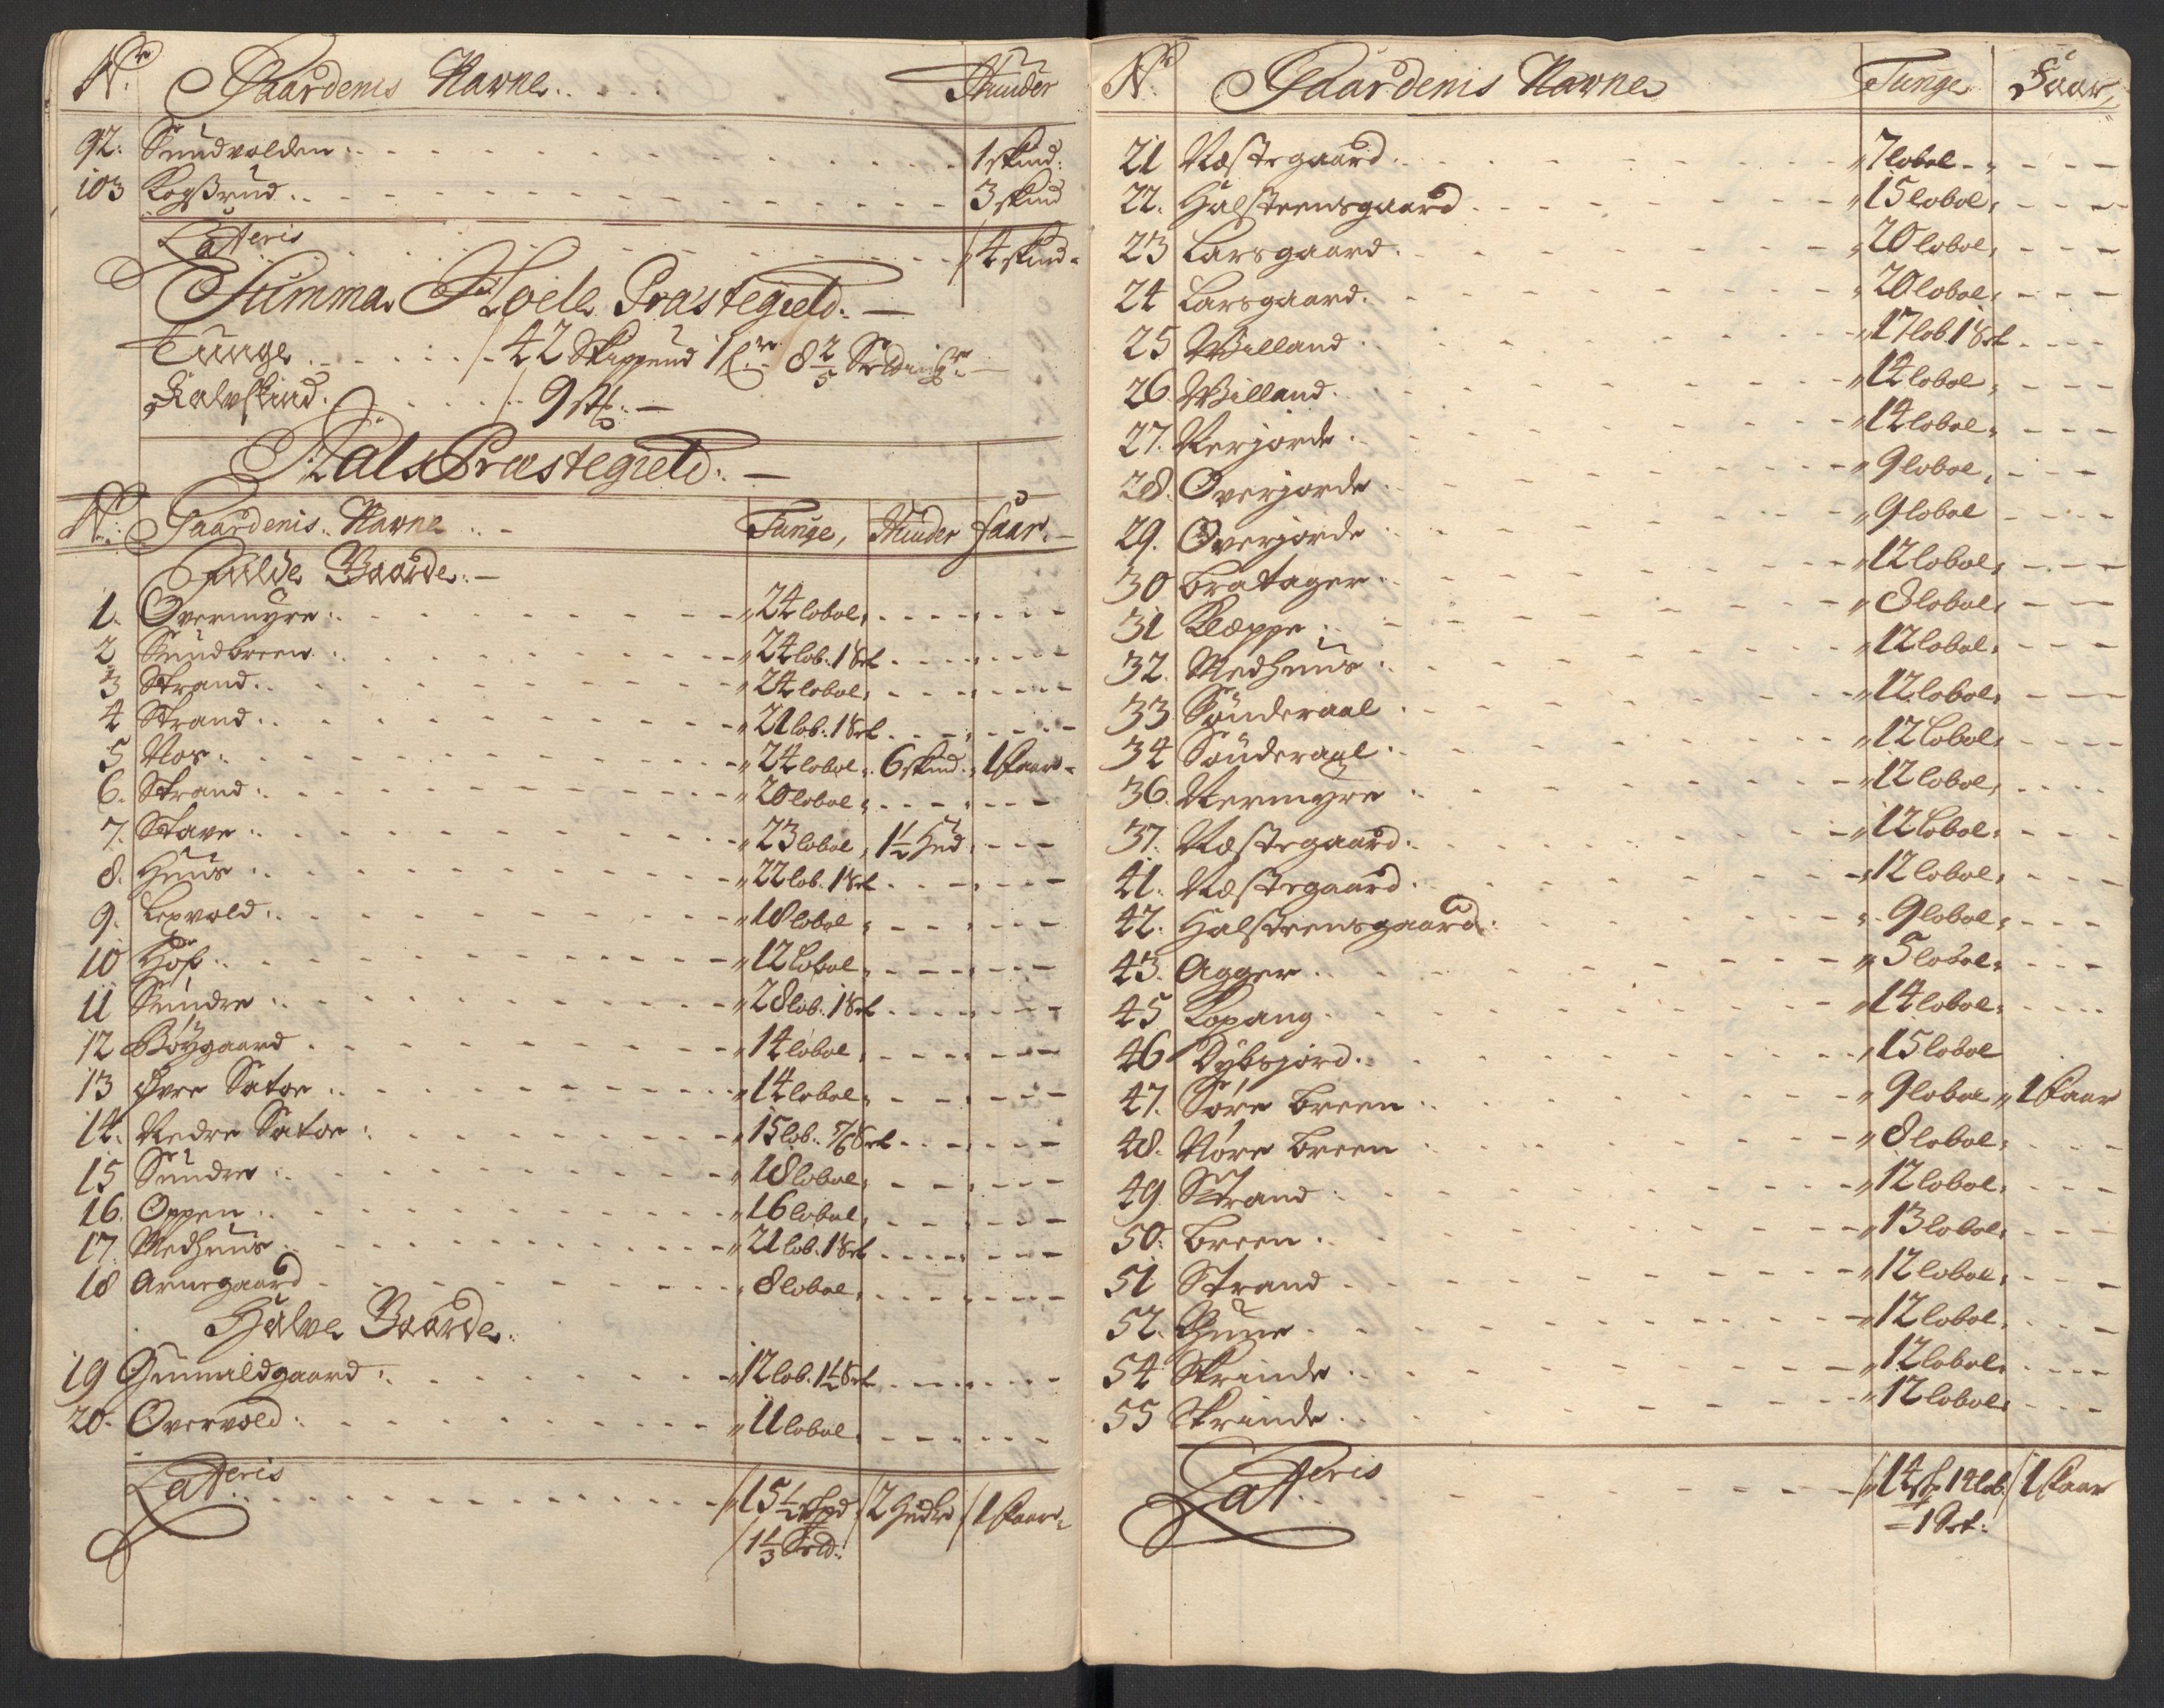 Nr. Gaardenis Navne. Huuder
92. Sundvolden. 1 skind.
103 Rogßrud. 3 skind
Lateris 4 skind
Summa Hoele Præstegield. —
Tunge. 42 Skippund 1 8 2/5 Setting
Kalvskind. 9 st. —
Aals Præstegield. —
Nr. Gaardenis Navne Tunge, Huuder faar. —
Fulde Gaarde. —
1. Overmyre. 24 lobol.
2 Sundbreen. 24 lob. 1 Set
3 Strand. 24 lobol.
4 Strand. 21 lob. 1 Set
5 Nos. 24 lobol. 6 skind. 1 faar
6. Strand. 20 lobol
7. Stave. 23 lobol, 1½ Hud
8. Huus. 22 lob. 1 Set
9. Lexvold. 18 lobol
10 Hof. 12 lobol
11 Sundre. 28 lob. 1 Set
12 Böygaard. 14 lobol
13 Øvre Sator. 14 lobol
14. Nedre Sator. 15 lob. Set
15 Sundre. 18 lobol
16. Oppen. 16 lobol
17. Nedhuus. 21 lob. 1 Set
18 Arnegaard 8 lobol
Halve Gaarde.
19 Gunnildgaard. 12 lob. 1½ Set
20. Overvold. 11 lobol
Lateris 15½ Spd 2 Huder 1 faar
1⅓ Setd.
Nr. Gaardenis Navne Tunge Faar
21 Næstegaard. 7 lobol
22. Halsteensgaard 15 lobol
23 Larsgaard. 20 lobol
24 Larsgaard. 20 lobol
25 Willand. 17 lob. 1 Set
26 Willand. 14 lobol
27. Nerjorde. 14 lobol
28. Overjorde. 9 lobol
29. Overjorde 9 lobol
30 Bratager. 12 lobol
31 Kleppe. 8 lobol
32. Nedhuus. 12 lobol
33 Sönderaal. 12 lobol
34 Sönderaal. 12 lobol
36. Nermyre 12 lobol
37. Næstegaard. 12 lobol
41. Næstegaard. 12 lobol
42. Halsteensgaard. 9 lobol
43. Agger. 5 lobol
45 Kopang. 14 lobol
46 Dybsjord. 15 lobol
47. Söre breen. 9 lobol 1 faar
48. Nöre breen 8 lobol
49 Strand. 12 lobol
50. Breen. 13 lobol
51 Strand. 12 lobol
52. Thune. 12 lobol
54 Skrinde. 12 lobol
55 Skrinde. 12 lobol
Lateris 14 14 lob. 1 faar
1 Set.